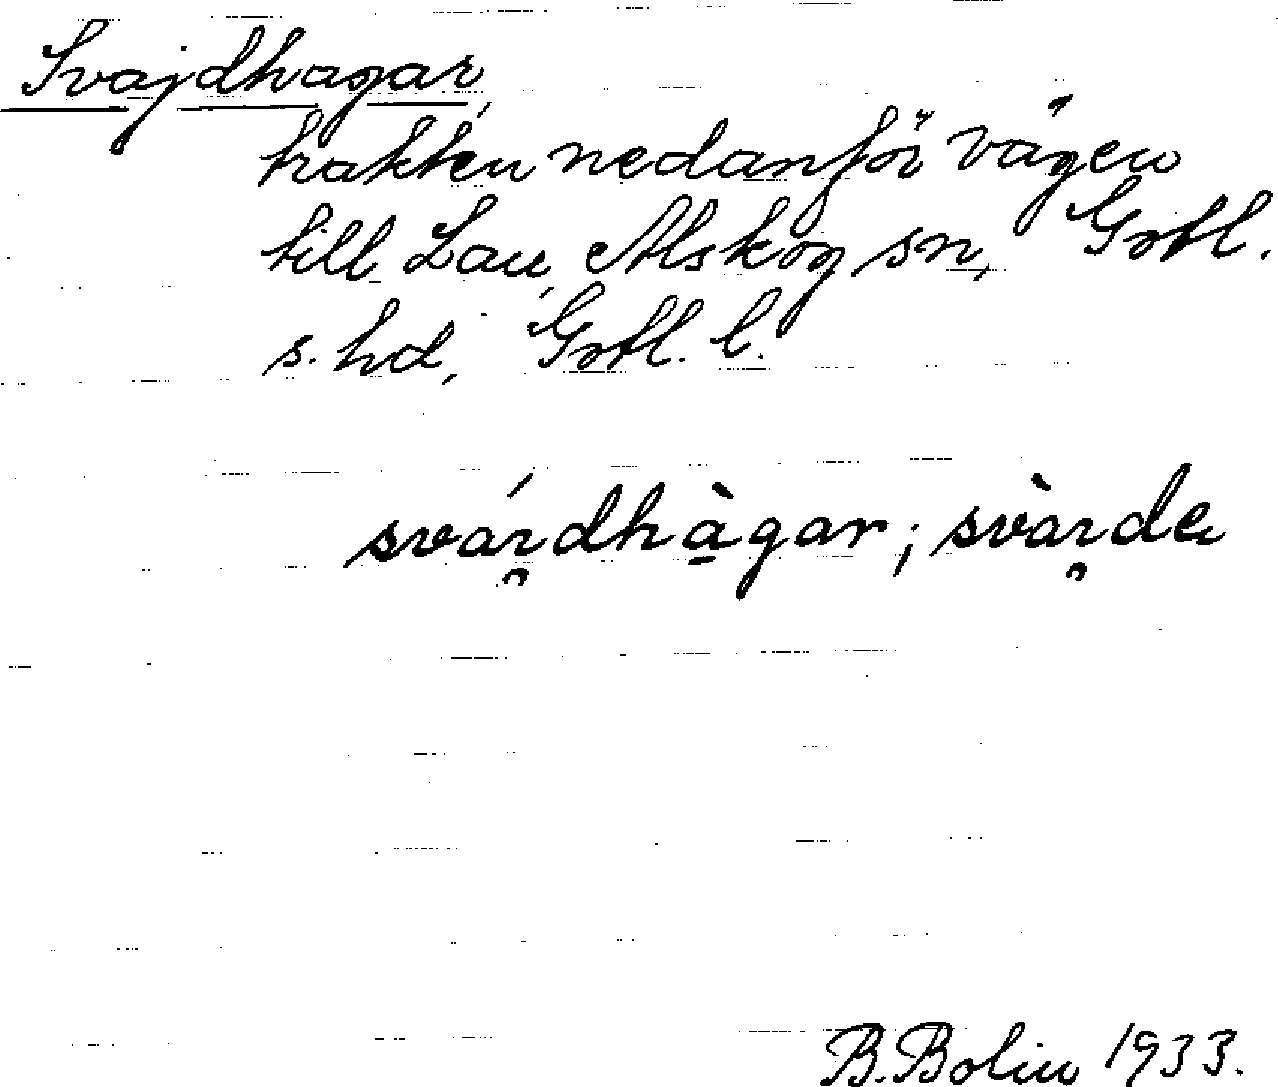 Svajdhagar,
trakten nedanför vägen
till Lau, Alskog sn, Gotl.
s. hd, Gotl. l.
sváı̯dhà̱gar; svàı̯de
B. Bolin 1933.